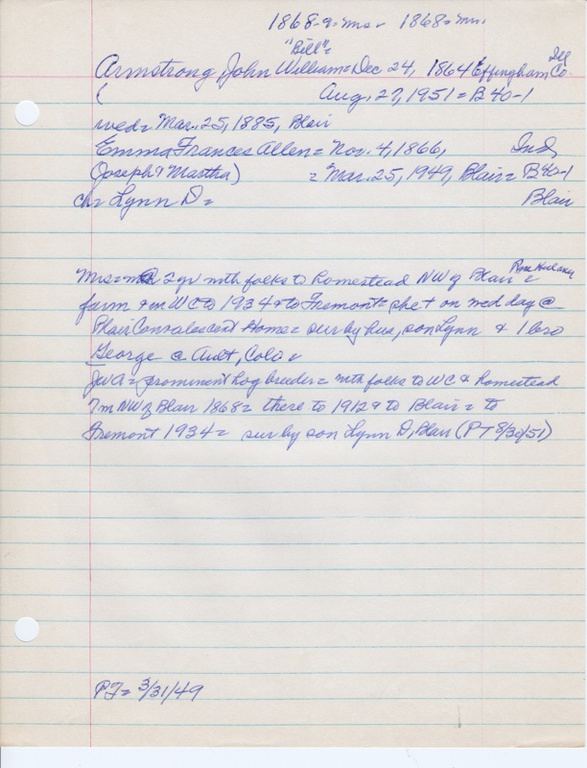 1868-9=mrs= 1868=mr.
"Bill"=
Armstrong, John William=Dec 24, 1864 Effingham Co. Ill
( Aug. 27, 1951=B 40-1
wed= Mar. 25, 1885, Blair
Emma Frances Allen= Nov. 4, 1866, Ind
(Joseph & Martha) = Mar. 25, 1949, Blair= B40-1
ch= Lynn D= Blair
Mrs= @ 2 yr with folks to homestead NW of Blair =
farm & in WC to 1934 & to Fremont= she + on wed day @
Blair Convalescent Home= sur by hus, son Lynn & 1 bro
George @ Ault, Colo=
JWA= prominent hog breeder= with folks to WC & homestead
7m NW of Blair 1868= there to 1912 & to Blair= to
Fremont 1934= sur by son Lynn D, Blair (PT 8/30/51)
PT= 3/31/49